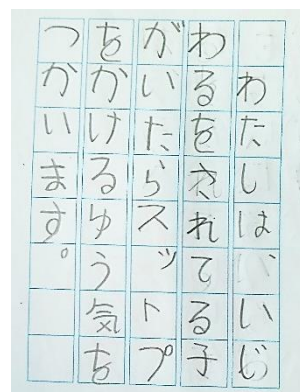 わたしは、いじ
わるをされてる子
がいたらスットプ
をかけるゆう気を
つかいます。